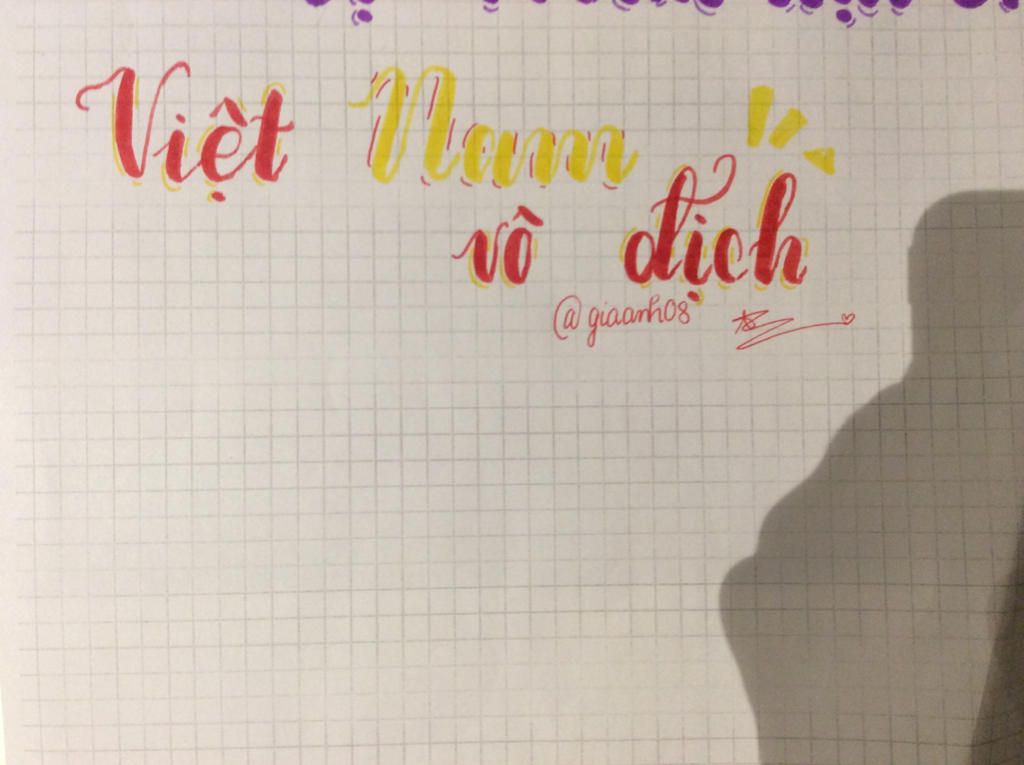 Việt Nam
vô địch
@giaanh08